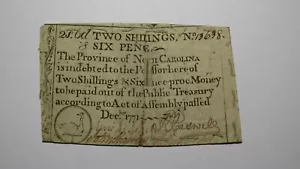 2s.6d TWO SHILLINGS, No. 3638.
& SIX PENC
The Province of North CAROLINA
is indebted to the Possessor hereof
Two Shillings & Six pence proc. Money
to be paid out of the Public Treasury
according to Act of Assembly passed
Decr. 1771